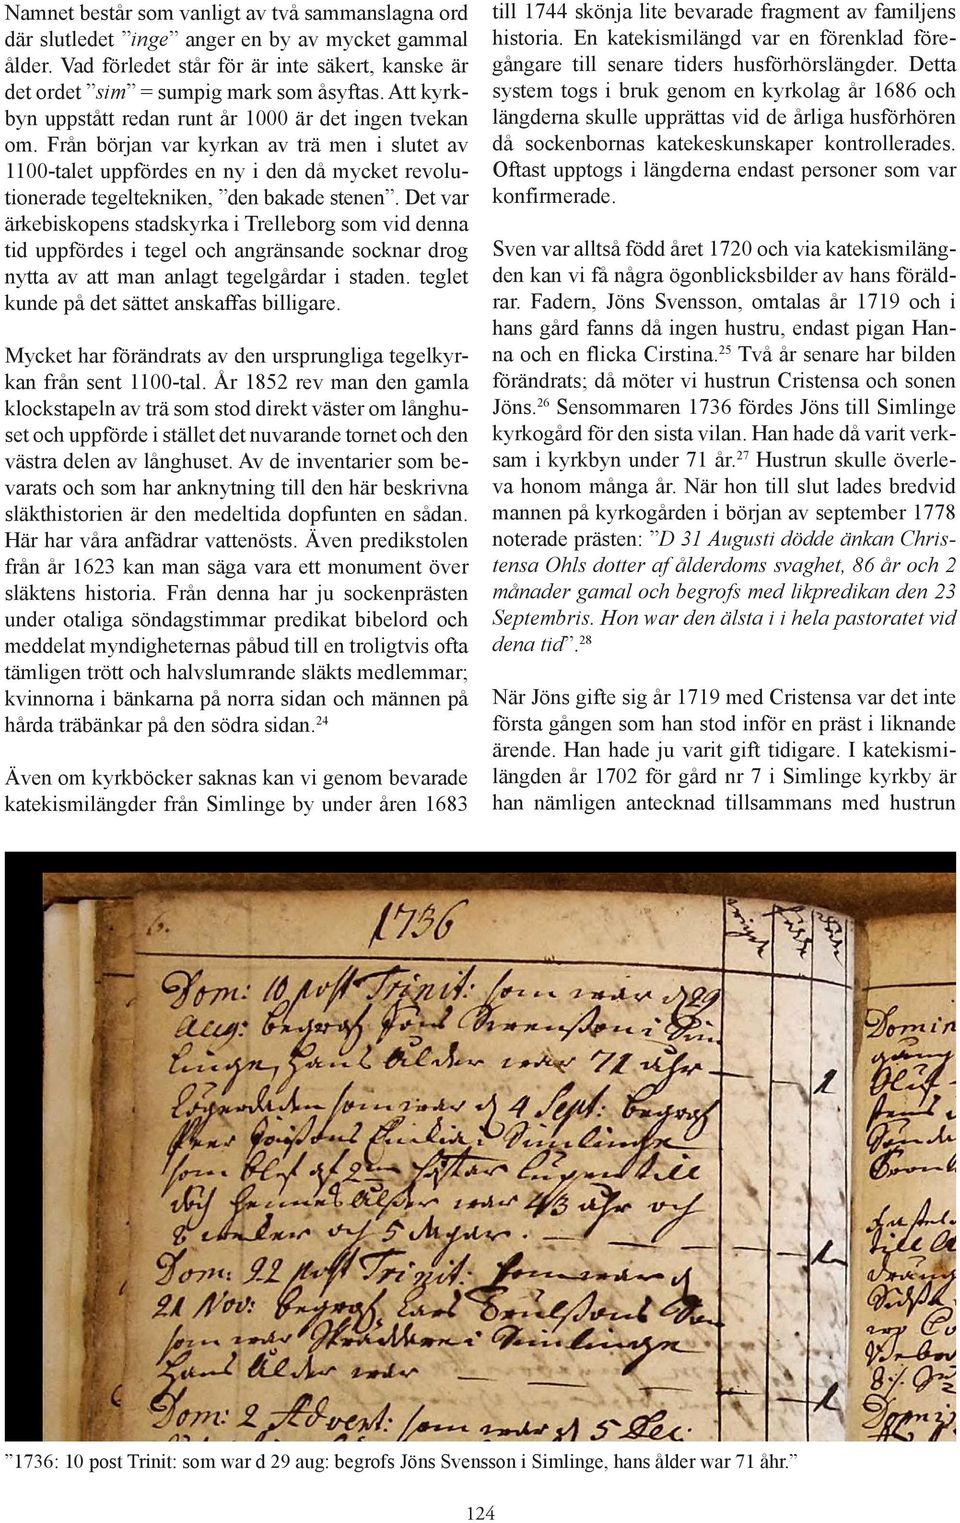 Namnet består som vanligt av två sammanslagna ord
där slutledet ”inge” anger en by av mycket gammal
ålder. Vad förledet står för är inte säkert, kanske är
det ordet ”sim” = sumpig mark som åsyftas. Att kyrk-
byn uppstått redan runt år 1000 är det ingen tvekan
om. Från början var kyrkan av trä men i slutet av
1100-talet uppfördes en ny i den då mycket revolu-
tionerade tegeltekniken, ”den bakade stenen”. Det var
ärkebiskopens stadskyrka i Trelleborg som vid denna
tid uppfördes i tegel och angränsande socknar drog
nytta av att man anlagt tegelgårdar i staden. teglet
kunde på det sättet anskaffas billigare.

Mycket har förändrats av den ursprungliga tegelkyr-
kan från sent 1100-tal. År 1852 rev man den gamla
klockstapeln av trä som stod direkt väster om långhu-
set och uppförde i stället det nuvarande tornet och den
västra delen av långhuset. Av de inventarier som be-
varats och som har anknytning till den här beskrivna
släkthistorien är den medeltida dopfunten en sådan.
Här har våra anfädrar vattenösts. Även predikstolen
från år 1623 kan man säga vara ett monument över
släktens historia. Från denna har ju sockenprästen
under otaliga söndagstimmar predikat bibelord och
meddelat myndigheternas påbud till en troligtvis ofta
tämligen trött och halvslumrande släkts medlemmar;
kvinnorna i bänkarna på norra sidan och männen på
hårda träbänkar på den södra sidan.24

Även om kyrkböcker saknas kan vi genom bevarade
katekismilängder från Simlinge by under åren 1683
till 1744 skönja lite bevarade fragment av familjens
historia. En katekismilängd var en förenklad före-
gångare till senare tiders husförhörslängder. Detta
system togs i bruk genom en kyrkolag år 1686 och
längderna skulle upprättas vid de årliga husförhören
då sockenbornas katekeskunskaper kontrollerades.
Oftast upptogs i längderna endast personer som var
konfirmerade.

Sven var alltså född året 1720 och via katekismiläng-
den kan vi få några ögonblicksbilder av hans föräld-
rar. Fadern, Jöns Svensson, omtalas år 1719 och i
hans gård fanns då ingen hustru, endast pigan Han-
na och en flicka Cirstina.25 Två år senare har bilden
förändrats; då möter vi hustrun Cristensa och sonen
Jöns.26 Sensommaren 1736 fördes Jöns till Simlinge
kyrkogård för den sista vilan. Han hade då varit verk-
sam i kyrkbyn under 71 år.27 Hustrun skulle överle-
va honom många år. När hon till slut lades bredvid
mannen på kyrkogården i början av september 1778
noterade prästen: ”D 31 Augusti dödde änkan Chris-
tensa Ohls dotter af ålderdoms svaghet, 86 år och 2
månader gamal och begrofs med likpredikan den 23
Septembris. Hon war den älsta i i hela pastoratet vid
dena tid”.28

När Jöns gifte sig år 1719 med Cristensa var det inte
första gången som han stod inför en präst i liknande
ärende. Han hade ju varit gift tidigare. I katekismi-
längden år 1702 för gård nr 7 i Simlinge kyrkby är
han nämligen antecknad tillsammans med hustrun
1736
Dom: 10 post Trinit: som war d 29
Aug: begrofs Jöns Swensson i Sim
linge, hans ålder war 71 åhr
som war d 4 Sept: begrofs
i Simlinge
som till
doch hennes ålder war 43 åhr och
8 weker och 5 dagar.
Dom: 22 post Trinit: som war d
21 Nov: begrofs Lars
som war i Simlinge
hans ålder war
Dom: 2 Advent: som war d 5 Dec:
”1736: 10 post Trinit: som war d 29 aug: begrofs Jöns Svensson i Simlinge, hans ålder war 71 åhr.”
124